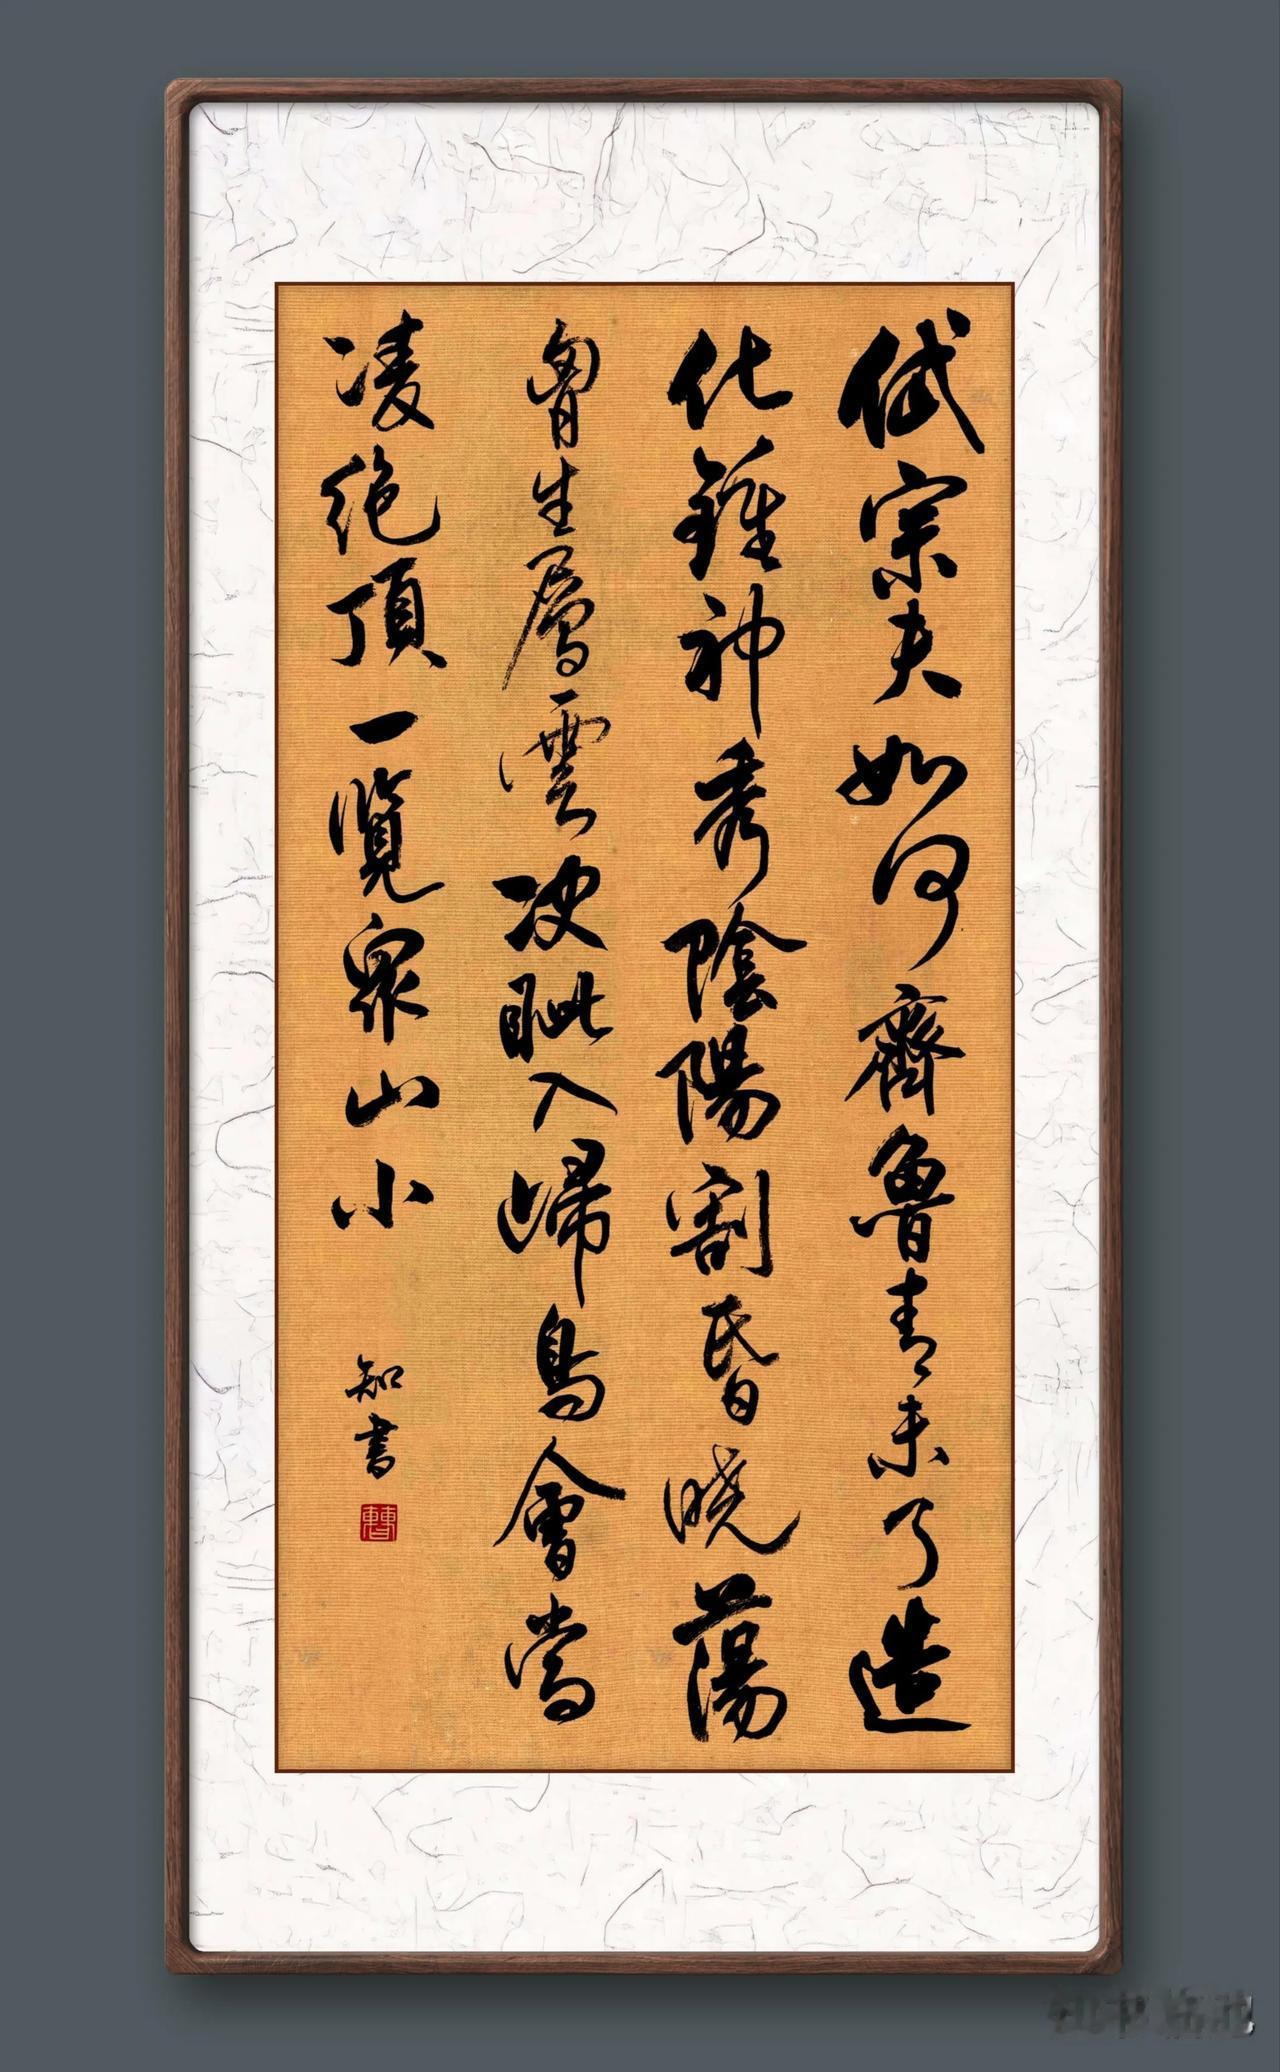 岱宗夫如何齊魯青未了造
化鍾神秀陰陽割昏曉蕩
胷生層雲决眦入歸鳥會當
凌絶頂一覽衆山小
知書